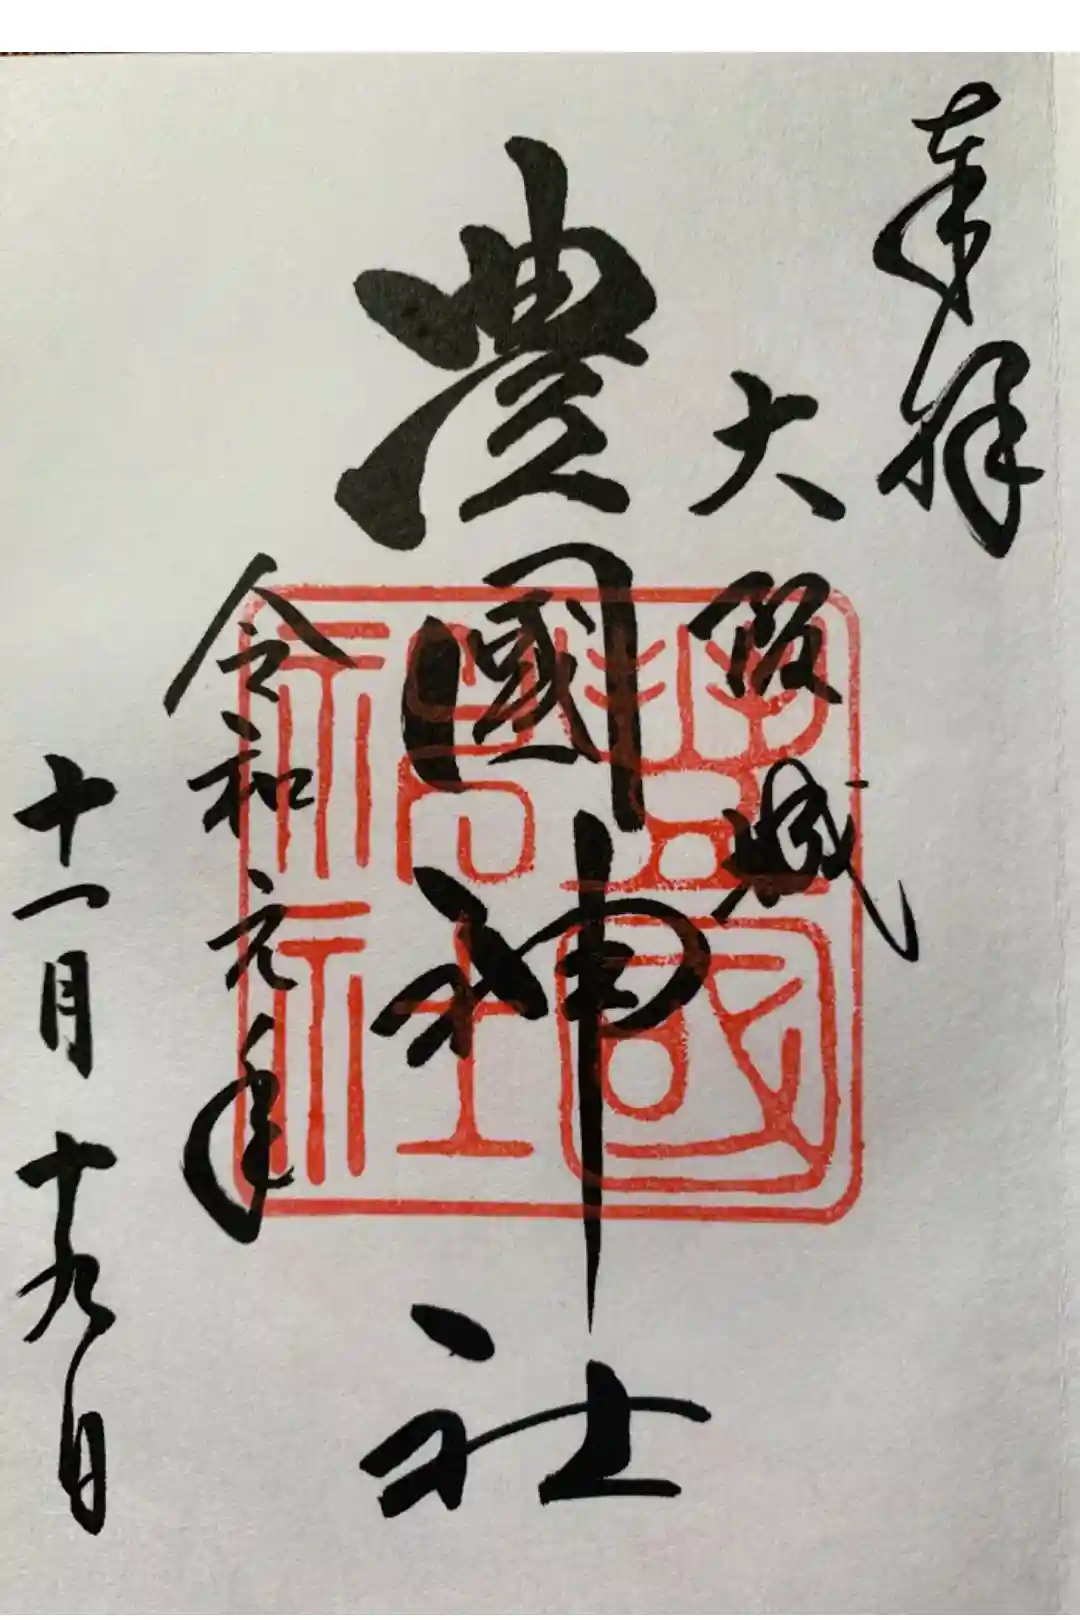 奉拝
大阪城
豊國神社
令和元年
十一月十九日
豊國神社